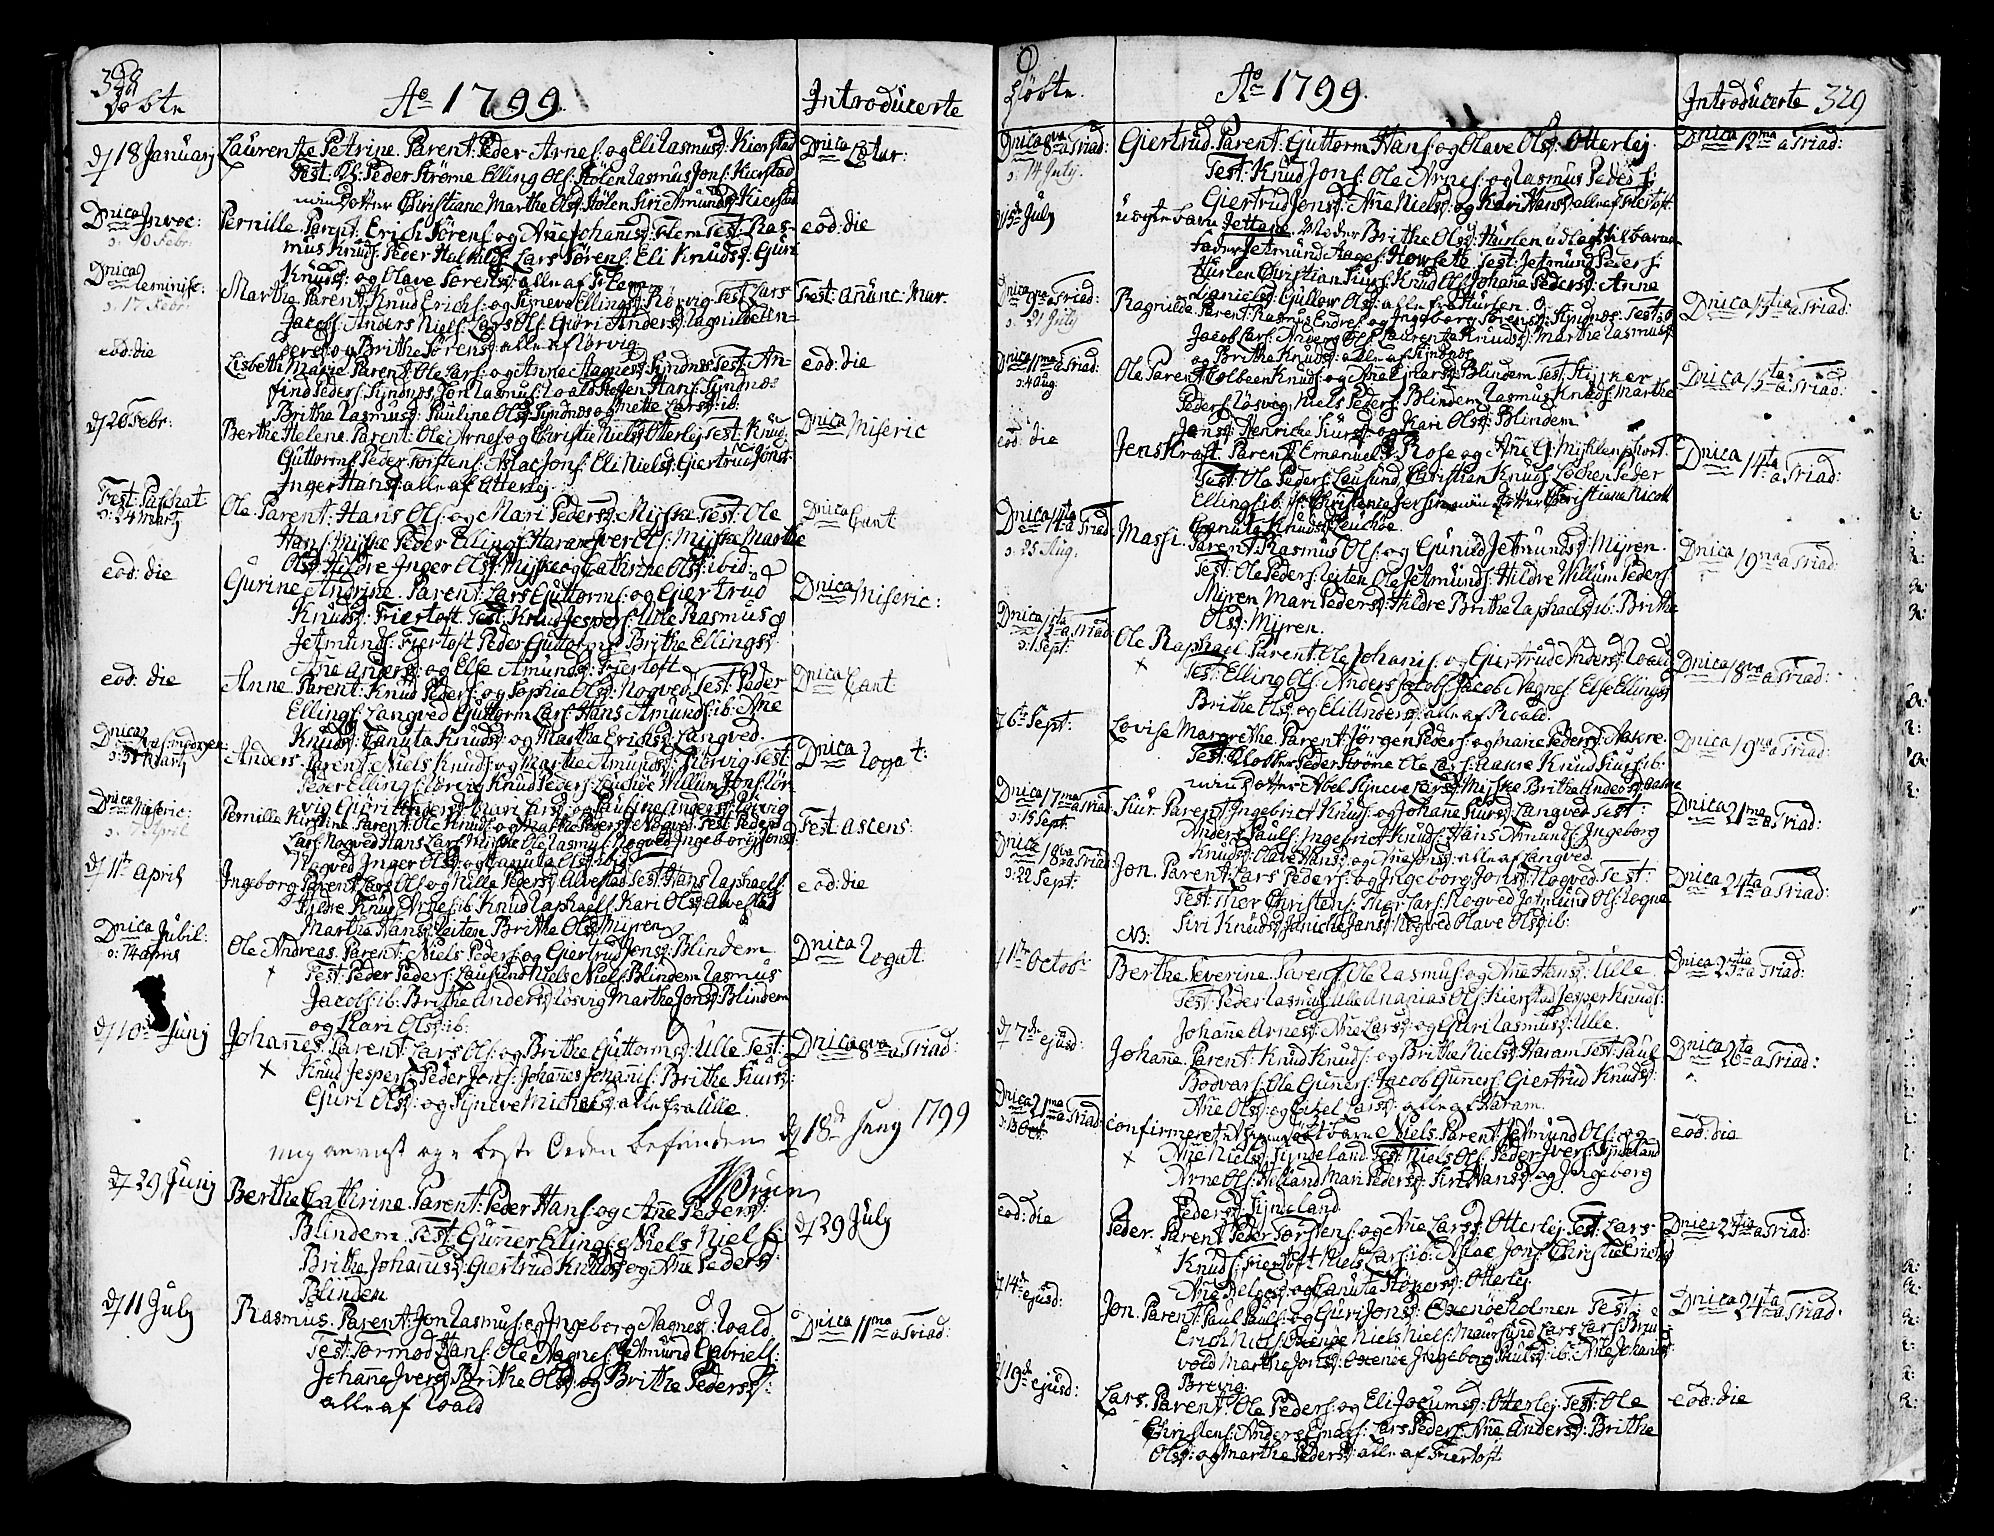 328
Døbte
Ao 1799.
Introducerte
d 18 Januarj
Laurentze Petrine. Parent: Peder Arnes: og Eli Rasmusd: Kierstad
Test: Hr: Peder Strøme Elling Ols: Stølen Rasmus Jons: Kierstad
Christiane Marthe Olsd: Stølen Siri Amundsd: Kierstad
Dnica Estor:
Dnica Invoc:
o: 10 Febr:
Pernille. Parent: Erich Sørens: og Ane Johannisd: Flem Test: Ras-
mus Knuds: Peder Lars Sørens: Eli Knudsd: Guri
Knudsd: og Olave Sørensd: alle af Flem
eod: die
Dnica Reminisc:
o: 17 Febr:
Marthe Parent: Knud Erichs: og Synneve Ellingsd: Rørvig Test: Lars
Jacobs: Anders Niels: Lars Ols: Guri Andersd:
og Brithe Sørensd: alle af Rørvig
Fest: anunc: Mar.
eod: die
Lisbeth Marie Parent: Ole Lars: og Anne Magnesd: Syndnes Test: An-
find Peders: Syndnes, Jon Rasmus: Roald Hans: Syndnes
Brithe Rasmusd: Pauline Olsd: Syndnes og Mette Larsd: ib:
eod: die
d 26 Febr:
Berthe Helene. Parent: Ole Arnes: og Christie Nielsd: Otterlej Test: Knud
Guttorms: Peder Torstens: Aslac Jons: Eli Nielsd: Giertrud Jonsd:
Inger Hansd: alle af Otterlej.
Dnica Miseric
Fest: Paschat
o: 24 Martj
Ole. Parent: Hans Ols: og Mari Pedersd: Myske Test: Ole
Hans: Myske Peder Ellings: Haram Iver Ols: Myske Marthe
Olsd: Hildre Inger Olsd: Myske og Cathrine Olsd: ibid:
Dnica Cant
eod: die
Gurine Andrine. Parent: Lars Guttorms: og Giertrud
Knudsd: Fiertoft Test: Knud Jespers: Ulle Rasmus
Jetmunds: Fiertoft Peder Guttorms: Brithe Ellingsd:
Ane Andersd: og Else Amundsd: Fiertoft
Dnica Miseric:
eod: die
Anne. Parent: Knud Peders: og Sophie Olsd: Nogved Test: Peder
Ellings: Langved Guttorm Lars: Hans Amunds: ib: Ane
Knudsd: Canuta Knudsd: og Marthe Erichsd: Langved.
Dnica Cant
Dnica
o: 31 Martj
Anders. Parent: Niels Knuds: og Marthe Amundsd: Rørvig Test:
Peder Ellings: Rørvig Knud Peders: Leuchøe Willum Jons: Rør-
vig Guri Andersd: Kari Larsd: og Paulina Andersd: Rørvig
Dnica Rogat:
Dnica Miseric:
o: 7 April
Pernille Kirstine Parent: Ole Knuds: og Marthe Pedersd: Nogved Test: Peder
Lars: Nogved Hans Lars: Myske Ole Rasmus: Nogved Ingeborg Jonsd:
Nogved Inger Olsd: og Canuta Olsd: ibid:
Fest: ascens:
d 11te April
Ingeborg Parent: Lars Ols: og Nille Pedersd: Alvestad Test: Hans Raphaels:
Hildre Knud Arnes: ib: Knud Raphaels: Kari Olsd: Alvestad
Marthe Hansd: Leiten Brithe Olsd: Myren
eod: die
Dnica Jubil:
o: 14 april
Ole Andreas. Parent: Niels Peders: og Giertrud Jonsd: Blindem
Test: Peder Peders: Lausund Niels Niels: Blindem Rasmus
Jacobs: ib: Brithe Andersd: Løsvig Marthe Jonsd: Blindem
og Kari Olsd: ib:
Dnica Rogat:
d 10de Junj
Johannes. Parent: Lars Ols: og Brithe Guttormsd: Ulle Test:
Knud Jespers: Peder Jons: Johannes Johannis: Brithe Siursd:
Guri Olsd: og Synneve Michelsd: alle fra Ulle.
Dnica 8va a Triad:
beste Orden befunden d 18de Junj 1799
d 29 Junj
Berthe Cathrine. Parent: Peder Hans: og Ane Pedersd:
Blindem. Test: Guner Ellings: Niels Niels:
Brithe Johannisd: Giertrud Knudsd: og Ane Pedersd:
Blindem
d 29 July
d 11 July
Rasmus. Parent: Jon Rasmus: og Ingeborg Magnesd: Roald
Test: Tormod Hans: Ole Magnes: Jetmund Gabriels:
Johanne Iversd: Brithe Olsd: og Brithe Pedersd:
alle af Roald
Dnica 11ma a Triad:
Døbte.
Ao 1799.
Introducerte 329
Dnica 8va a Triad:
o: 14 July.
Giertrud. Parent: Guttorm Hans: og Olave Olsd: Otterlej.
Test: Knud Jons: Ole Arnes: og Rasmus Peders:
Giertrud Jonsd: Ane Nielsd: og Kari Hansd: alle af Fiertoft
Dnica 12ma a Triad:
d 15de July
uægte barn Jettane. Moder Brithe Olsd: Hurlen udlagt til barne-
fader Jetmund Aages: Howsette. Test: Jetmund Peders:
Hurlen Christian Siurs: Knud Ols: Johane Pedersd: Anne
Danielsd: Gullow Olsd: alle fra Hurlen
Dnica 9na a Triad:
o: 21 July
Ragnilde Parent: Rasmus Endres: og Ingeborg Sørensd: Syndnes: Test:
Jacob Lars: Amberg Ols: Laurentze Knudsd: Marthe Rasmusd:
og Brithe Knudsd: alle af Syndnes
Dnica 13tia a Triad:
Dnica 11ma a Triad:
o: 4 aug:
Ole Parent: Colbeen Knuds: og Ane Larsd: Blindem Test:
Peders: Løsvig, Niels Peders: Blindem Rasmus Knuds: Marthe
Jonsd: Henriche Siursd: og Kari Olsd: Blindem
Dnica 13tia a Triad:
eod: die
Jens Kraft. Parent: Emanuel Rose og Ane G: Myhlenphort.
Test: Ole Peders: Leusund, Christian Knuds: Lochen Peder
Ellings: ib: Christiane Nicoll
Canuta Knudsd: Leuchøe
Dnica 14ta a Triad:
Dnica 14ta a Triad:
o: 25 Aug.
Massi. Parent: Rasmus Ols: og Gunild Jetmundsd: Myren.
Test: Ole Peders: Leiten Ole Jetmunds: Hildre Willum Peders:
Myren Mari Pedersd: Hildre Brithe Raphaelsd: ib: Brithe
Olsd: Myren.
Dnica 19na a Triad:
Dnica 15ta a Triad:
o: 1 Sept:
Ole Raphael. Parent: Ole Johanis: og Giertrud Andersd: Roald
Test: Elling Ols: Anders Jacobs: Jacob Magnes: Else Ellingsd:
Brithe Olsd: og Eli Andersd: alle af Roald.
Dnica 18va a Triad:
d 6te Sept:
Lovise Margrethe. Parent: Jørgen Peders: og Mane Pedersd: Aakre.
Test: Klokker Peder Strøme Ole Lars: Aakre Knud Siurs: ib:
Abel Synneve Larsd: Myske Brithe Andersd: Aakre
Dnica 19na a Triad:
Dnica 17ma a Triad:
o: 15 Sept:
Siur. Parent: Ingebrict Knuds: og Johane Siursd: Langved Test:
Anders Pauls: Ingebrict Knuds: Hans Amunds: Ingeborg
Knudsd: Olave Hansd: og Ane Jonsd: alle af Langved
Dnica 21ma a Triad:
Dnica 18va a Triad:
o: 22 Sept:
Jon. Parent: Lars Peders: og Ingeborg Jonsd: Nogved Test:
Test: Mor Christens: Iver Lars: Nogved Jetmund Ols: Rogne
Siri Knudsd: Janiche Jonsd: Nogved Olave Olsd: ib:
Dnica 24ta a Triad:
NB:
d 1te Octobr
Berthe Severine. Parent: Ole Rasmus: og Ane Hansd: Ulle
Test: Peder Rasmus: Ulle Ananias Ols: Kierstad Jesper Knuds:
Johane Arnesd: Ane Larsd: og Guri Rasmusd: Ulle.
Dnica 23tia a Triad:
d 7de ejusd:
Johane. Parent: Knud Knuds: og Brithe Nielsd: Haram Test: Paul
Bodvars: Ole Guners: Jacob Guners: Giertrud Knudsd:
Ane Olsd: og Larsd: alle af Haram.
Dnica 26ta a Triad:
Dnica 21ma a Triad:
o: 13 Oct:
confirmeret et hiemmedøbt barn Niels. Parent: Jetmund Ols: og
Ane Nielsd: Syndeland. Test: Niels Ols: Peder Ivers: Syndeland
Arne Ols: Hilland Mari Pedersd: Siri Hansd: og Ingeborg
Pedersd: Syndeland.
eod: die
eod: die
Peder. Parent: Peder Torstens: og Ane Larsd: Otterlej Test: Lars
Knuds: Fiertoft Niels Lars: ib: Aslac Jons: Christie Erichsd:
Ane Helgesd: og Canuta Otterlej
Dnica 23tia a Triad:
d 14de ejusd:
Jon. Parent: Paul Pauls: og Guri Jonsd: Oxenøeholmen Test:
Erich Niels: Oxenøe Niels Niels: Maursund Lars Lars: Bru-
vold Marthe Jonsd: Oxenøe Ingeborg Paulsd: ib: Ane Johanisd:
Breivig
Dnica 24ta a Triad:
d 19de ejusd:
Lars. Parent: Ole Peders: og Eli Jocumsd: Otterlej Test: Ole
Christens: Anders Lars Peders: Ane Andersd: Brithe
Olsd: og Marthe Pedersd: alle af Fiertoft
eod: die